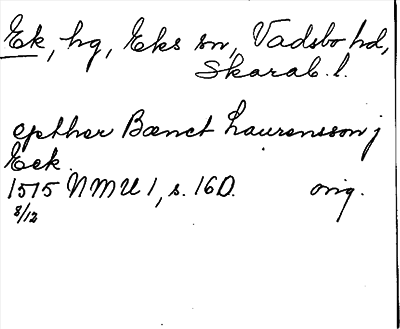 Ek, hg, Eks sn, Vadsbo hd,
Skarab. l.
epther Bænct Laurensson j
Eek.
1515 NMU 1, s. 160. orig.
8/12